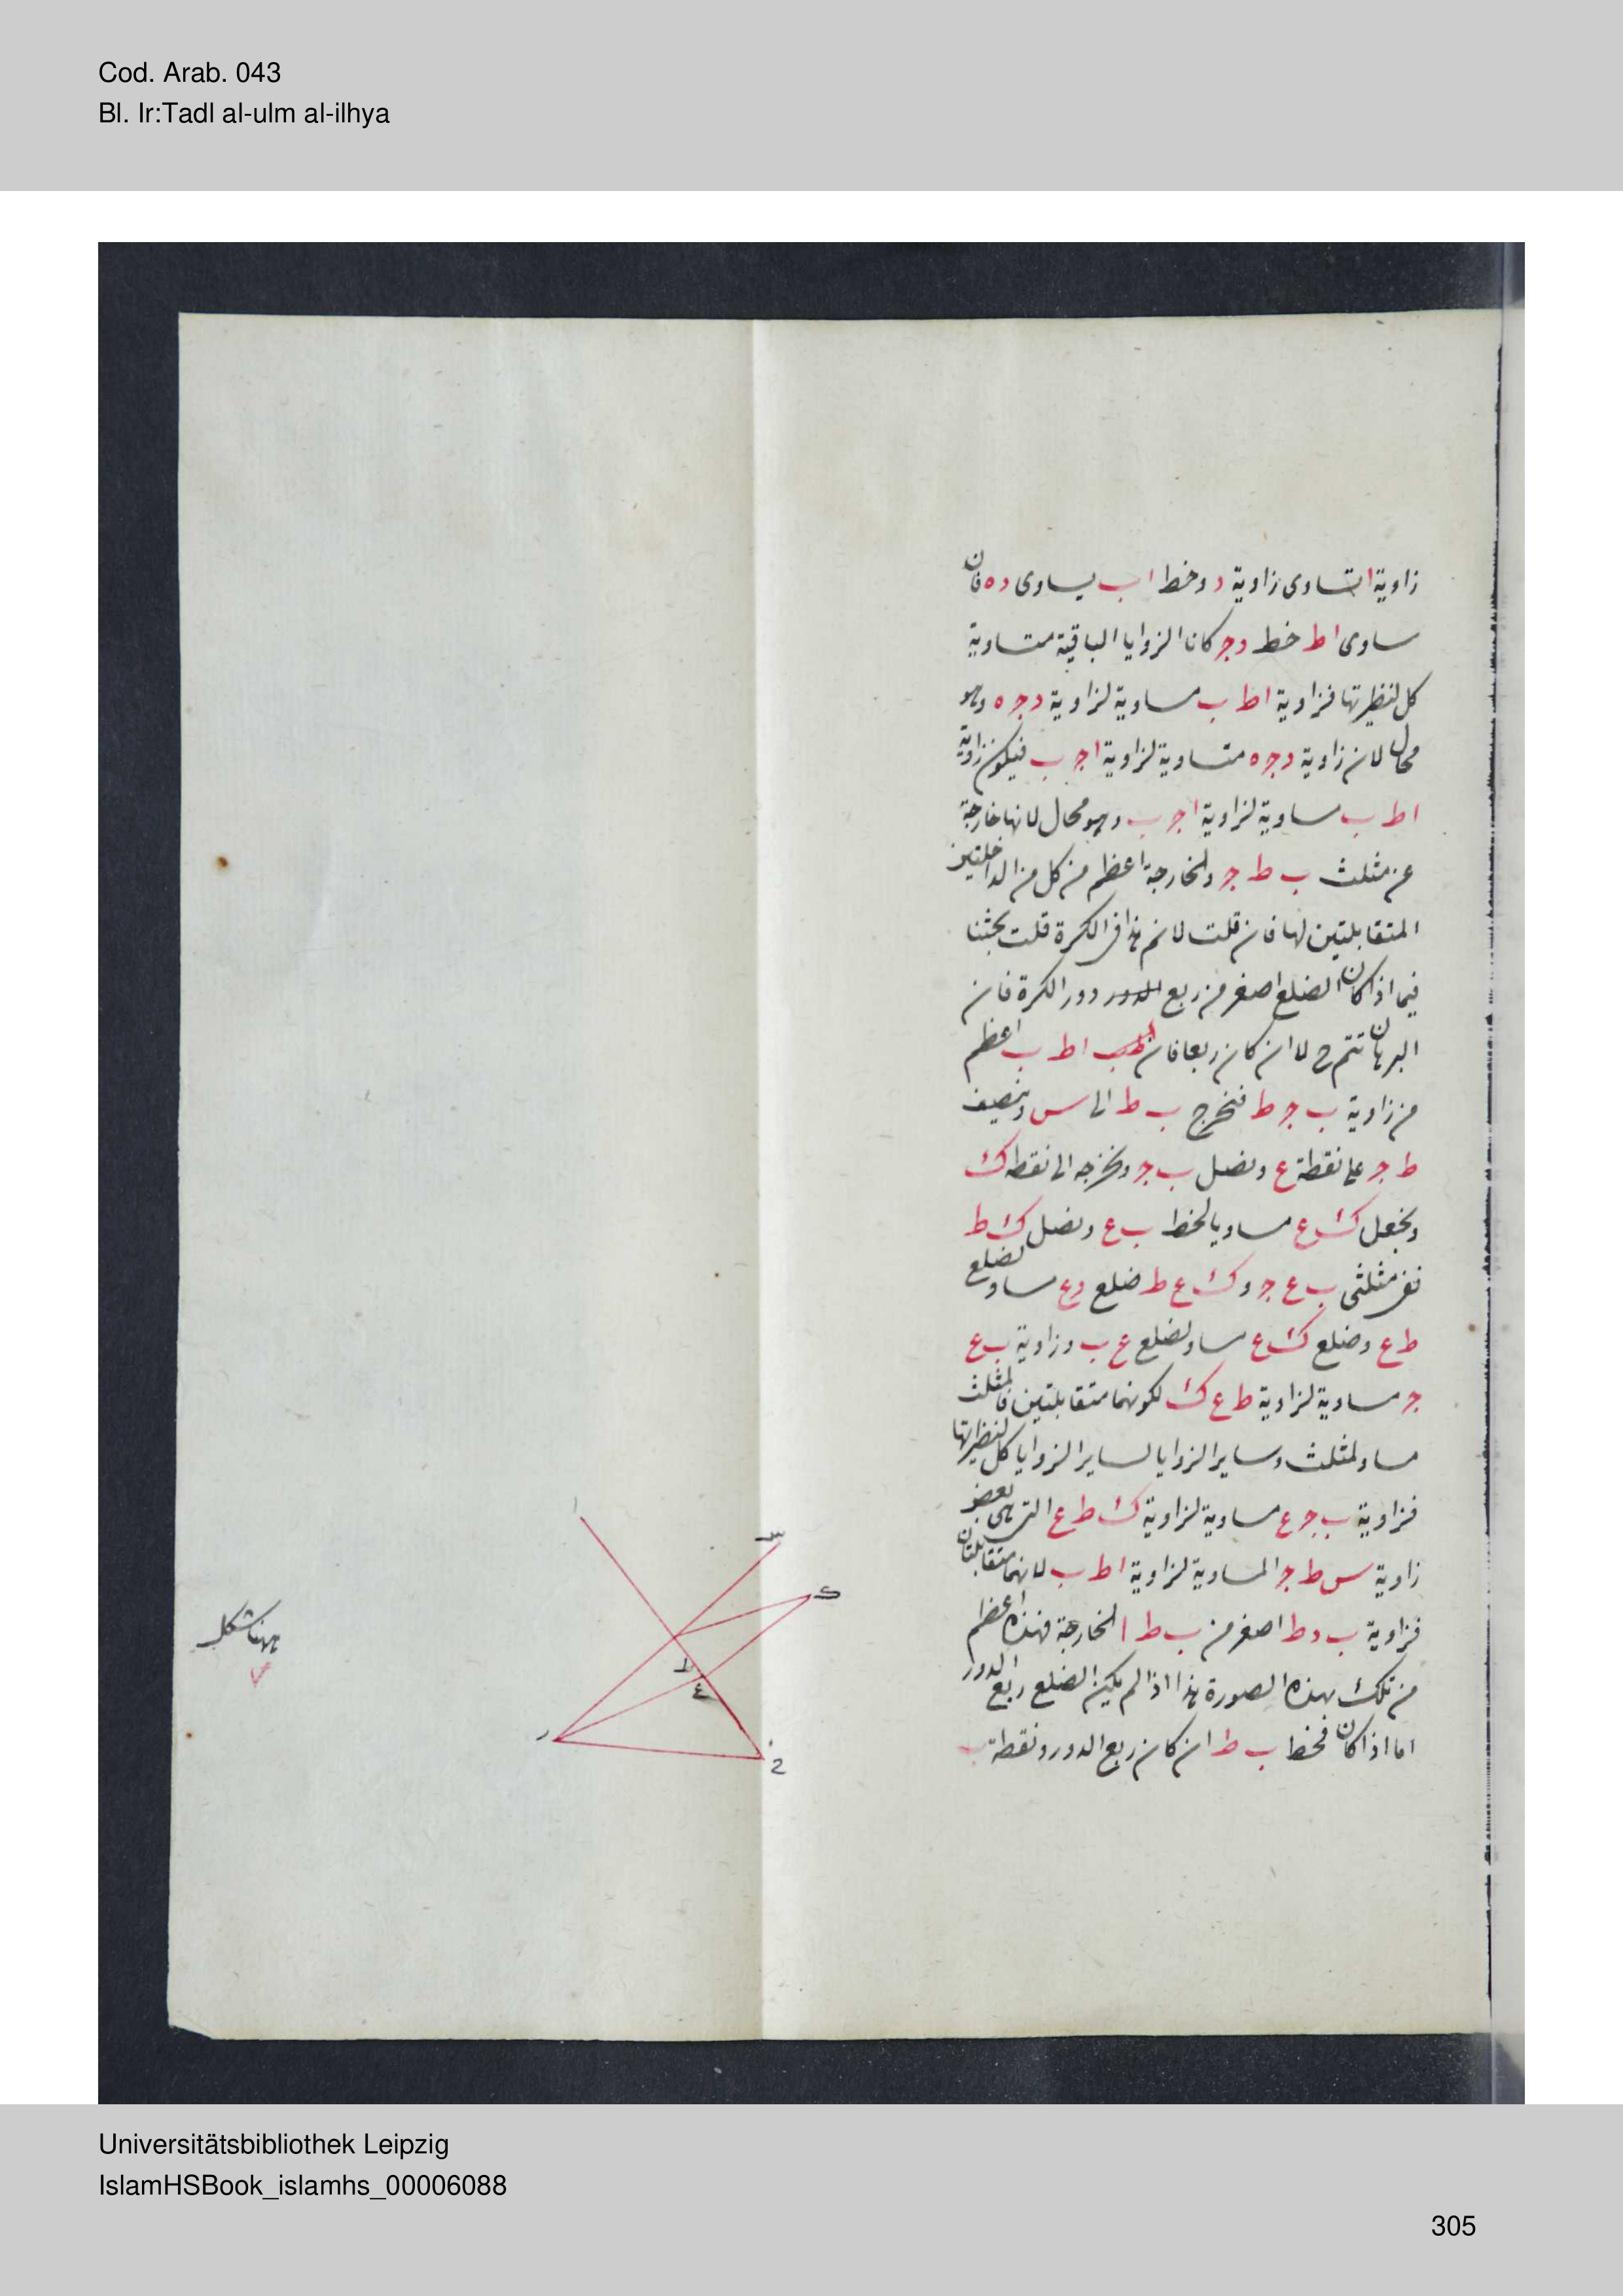 Cod. Arab. 043
Bl. Ir:Tadl al-ulm al-ilhya
زاوية ا تساوى زاوية د وخط ا ب يساوى د ه فان
ساوى ا ط خط د ج كانا الزوايا الباقية متساوية
كل لنظيرتها فزاوية ا ط ب مساوية لزاوية د ج ه وهو
محال لان زاوية د ج ه متساوية لزاوية ا ج ب فيكون زاوية
ا ط ب مساوية لزاوية ا ج ب وهو محال لانها خارجة
عن مثلث ب ط ج والخارجة اعظم من كل من الداخلتين
المتقابلتين لها فان قلت لا نم هذا فى الكرة قلت بحثنا
فيما اذا كان الضلع اصغر من ربع الدور دور الكرة فان
البرهان تتم ح لا ان كان ربعا فان ا ط ب اعظم
من زاوية ب ج ط فنخرج ب ط الى س وننصف
ط ج على نقطة ع ونصل ب ج ونخرجه الى نقطه ك
ونجعل ك ع مساويا لخط ب ع ونصل ك ط
ففى مثلثى ب ع ج و ك ع ط ضلع د ع مساو لضلع
ط ع وضلع ك ع مساو لضلع ع ب وزاوية ب ع
ج مساوية لزاوية ط ع ك لكونهما متقابلتين فالمثلث
مساو لمثلث وساير الزوايا لساير الزوايا كل لنظيرتها
فزاوية ب ج ع مساوية لزاوية ك ط ع التى هى بعض
زاوية س ط ج المساوية لزاوية ا ط ب لانهما متقابلتان
فزاوية ب د ط اصغر من ب ط ا الخارجة فهذه اعظم
من تلك بهذه الصورة هذا اذا لم يكن الضلع ربع الدور
اما اذا كان فخط ب ط ان كان ربع الدور ونقطة ب
ا
س
ك
ط
ع
ب
ج
ههنا شكل
Universitätsbibliothek Leipzig
IslamHSBook_islamhs_00006088
305